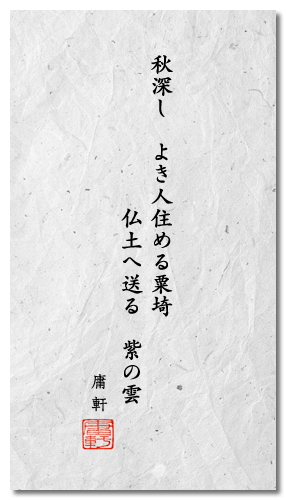 秋深し　よき人住める粟埼
仏土へ送る　紫の雲
庸軒